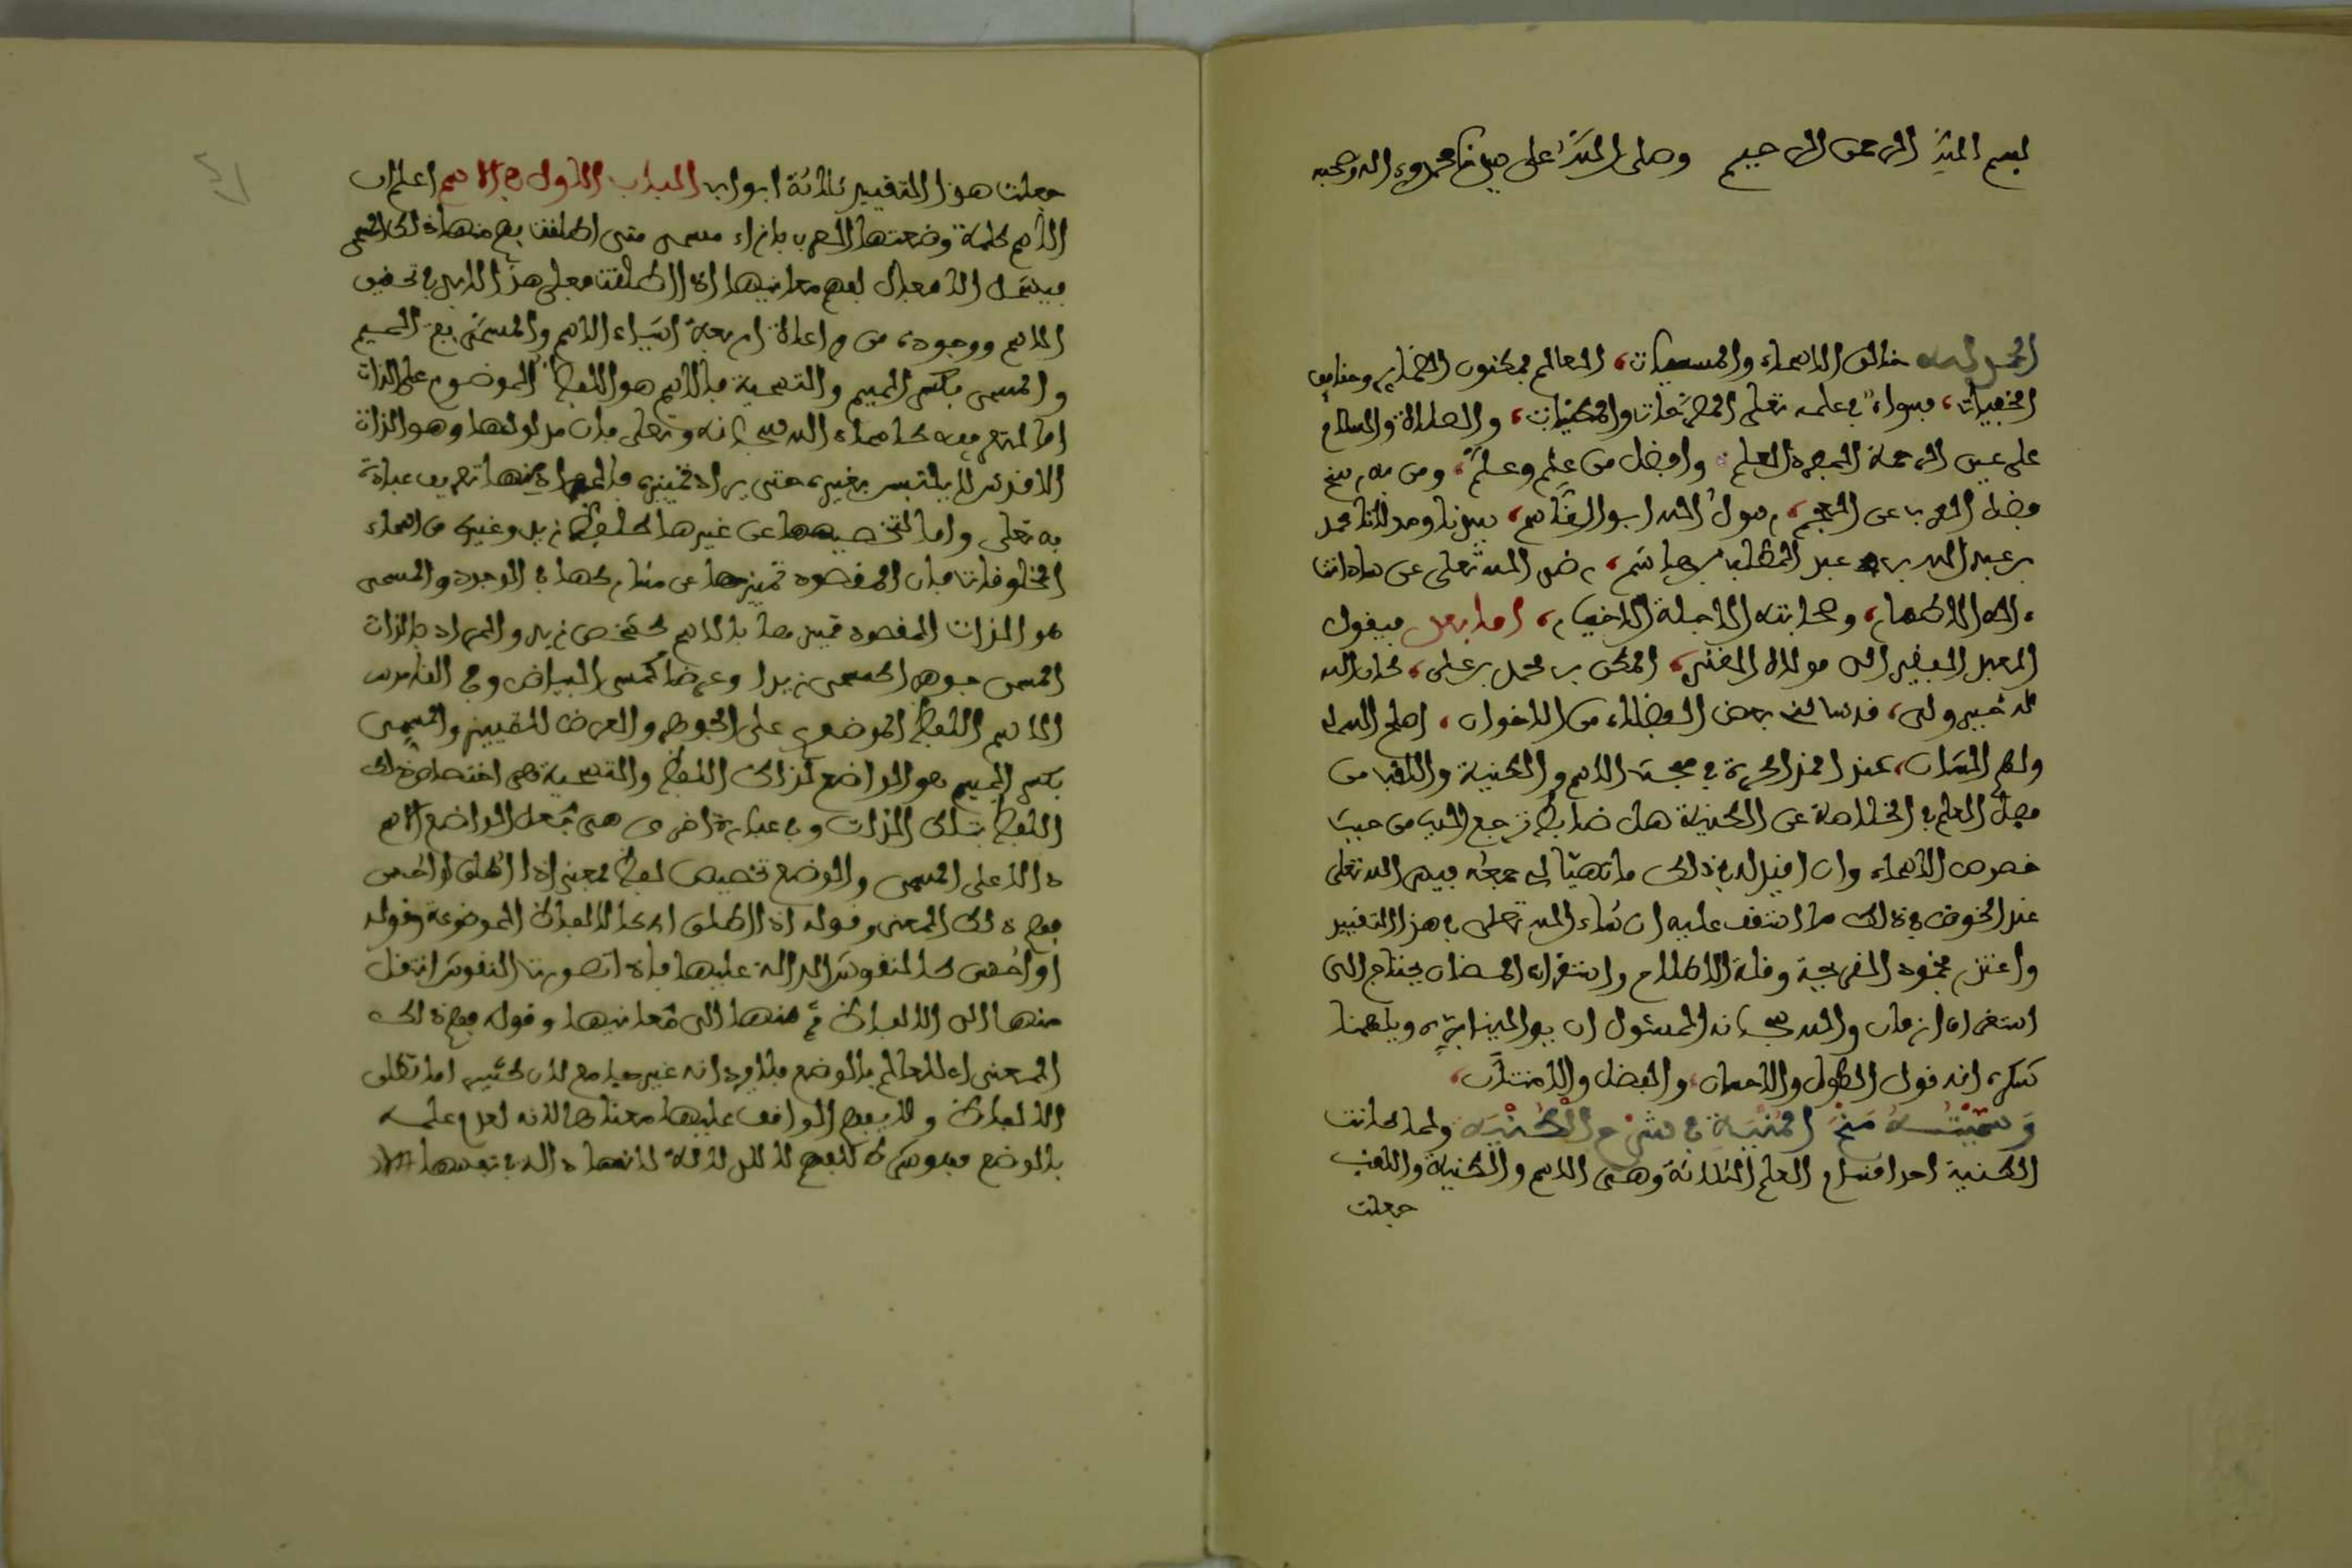 بسم الله الرحمن الرحيم وصلى الله على سيدنا محمد وءاله وصحبه
الحمد لله خالق الاسماء والمسميات، العالم بمكنون الضماير وخفايا
الخفيات، فسواء في علمه تعلى المصرحات والمكنيات، والصلاة والسلام
على عين الرحمة المهداة للعلم وافضل من علم وعلم، ومن به رسخ
فضل العرب عن العجم، رسول الله ابو القاسم، سيدنا ومولانا محمد
بن عبد الله بن عبد المطلب بن هاشم، رضي الله تعلى عن ساداتنا
ءاله الاطهار، وصحابته الاجلة الاخيار، اما بعد فيقول
العبد الفقير الى مولاه الغني، المكي بن محمد بن علي، كان الله
له خير ولي، قد سالني بعض الفضلاء من الاخوان، اصلح الله لي
ولهم الشان، عند المذاكرة في مبحث الاسم والكنية واللقب من
فصل العلم في الخلاصة عن الكنية هل ضابط ترجع اليه من حيث
خصوص الاسماء وان اقيد له في ذلك ما تهيأ لي جمعه فيسر الله تعلى
عند الخوض في ذلك ما ستقف عليه ان شاء الله تعلى في هذا التقييد
واعتذر بخمود القريحة وقلة الاطلاع واستقراء المضان يحتاج الى
استغراق ازمان والله سبحانه المسئول ان يوالينا بره ويلهمنا
شكره انه ذو الطول والاحسان، والفضل والامتنان،
وسميته منح المنية في شرح الكنيه ولما كانت
الكنية احد اقسام العلم الثلاثة وهي الاسم والكنية واللقب
جعلت
جعلت هذا التقييد ثلاثة ابواب الباب الاول في الاسم اعلم ان
الاسم كلمة وضعتها العرب بازاء مسمى متى اطلقت يفهم منها ذلك المسمى
فيشمل الافعال لفهم معانيها اذا اطلقت فعلى هذا لا بد في تحقيق
الاسم ووجوده من مراعاة اربعة اشياء الاسم والمسمى بفتح الميم
والمسمي بكسر الميم والتسمية فالاسم هو اللفظ الموضوع على الذات
اما لتعريفه كاسماء الله سبحانه وتعلى فان مدلولها وهو الذات
الاقدس لا يلتبس بغيره حتى يراد تمييزه فالمراد منها تعريف عباده
به تعلى واما لتخصيصها عن غيرها كلفظ زيد وغيره من اسماء
المخلوقات فان المقصود تمييزها عن مشاركها في الوجود والمسمى
هو الذات المقصود تمييزها بالاسم كشخص زيد والمراد بالذات
المسمى جوهرا كمسمى زيدا وعرضا كمسمى البياض وفي القاموس
الاسم اللفظ الموضوع على الجوهر والعرض للتمييز والمسمي
بكسر الميم هو الواضع لذلك اللفظ والتسمية هي اختصاص ذلك
اللفظ بتلك الذات وفي عبارة اخرى هي جعل الواضع الاسم
دالا على المسمى والوضع تخصيص لفظ بمعنى اذا اطلق او احس
فهم ذلك المعنى وقوله اذا اطلق اي كالالفاظ الموضوعة وقوله
او احس كالنقوش الدالة عليها فاذا تصورت النقوش انتقل
منها الى الالفاظ ثم منها الى معانيها وقوله فهم ذلك
المعنى اي للعالم بالوضع فلا يرد انه غير جامع لان كثيرا ما تطلق
الالفاظ ولا يفهم الواقف عليها معناها لانه لعدم علمه
بالوضع